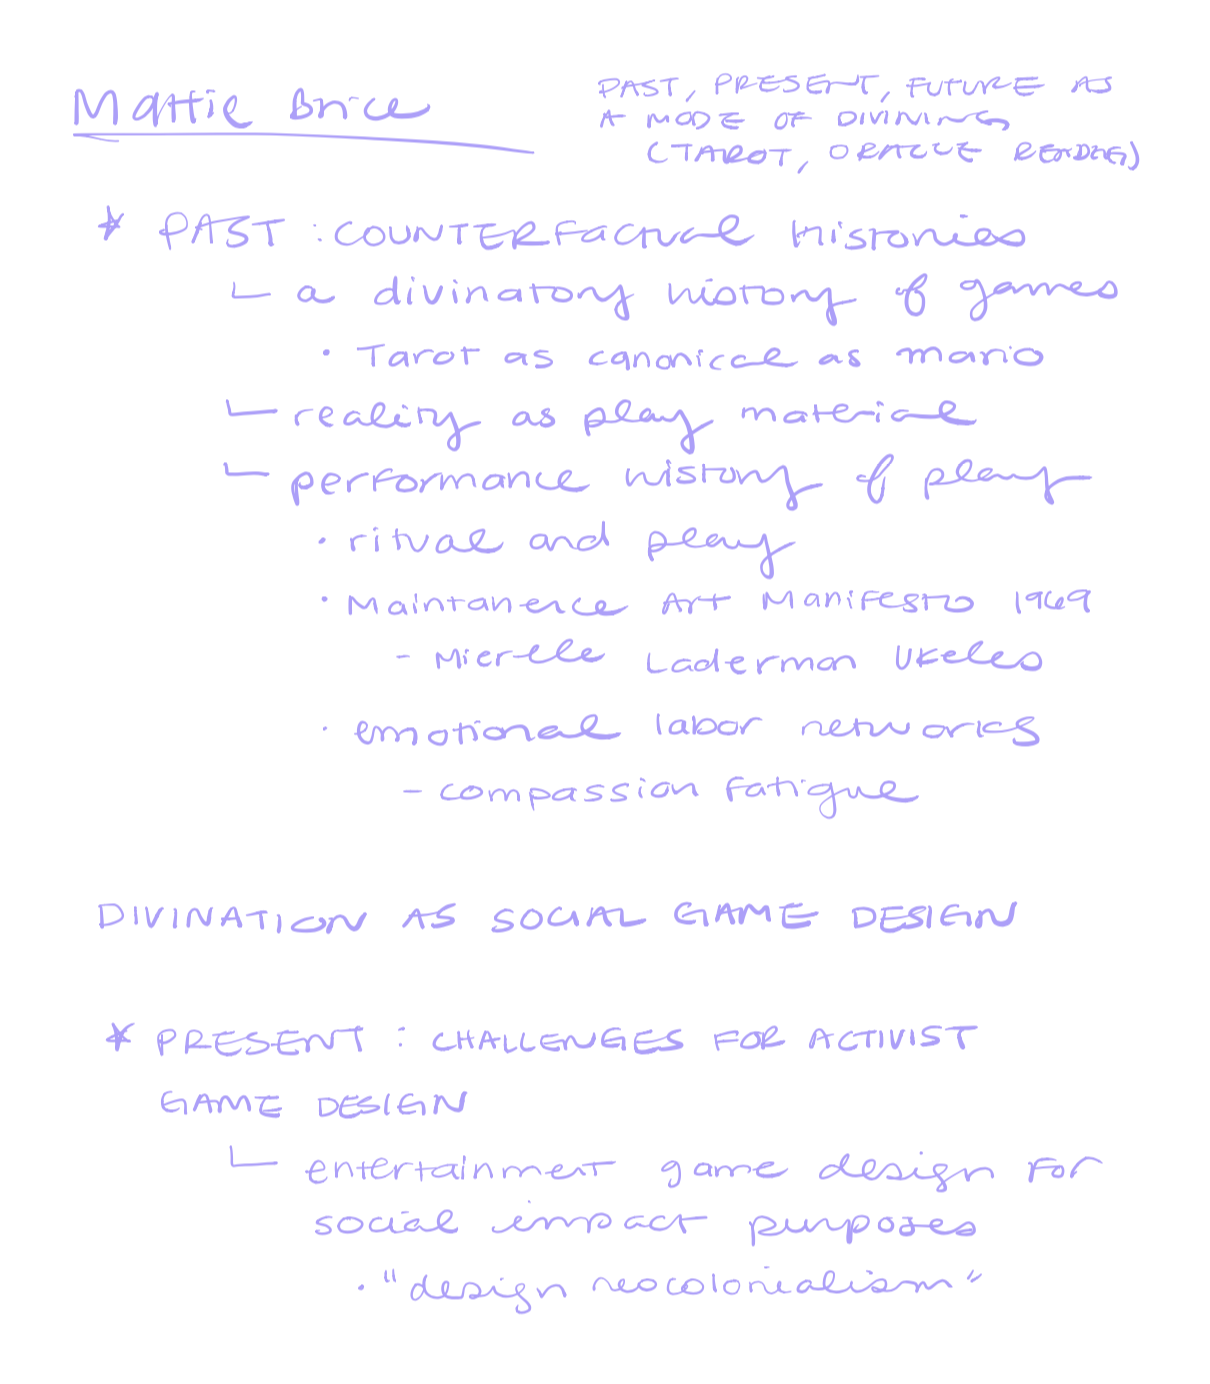 Mattie Brice
PAST, PRESENT, FUTURE AS
A MODE OF DIVINING
(TAROT, ORACLE READING)
* PAST: COUNTERFactual Histories
└ a divinatory history of games
• Tarot as canonical as mario
└ reality as play material
└ performance history of play
• ritual and play
• Maintanence Art Manifesto 1969
- Mierelle Laderman Ukeles
• emotional labor networks
- compassion fatigue
DIVINATION AS SOCIAL GAME DESIGN
* PRESENT: CHALLENGES FOR ACTIVIST
GAME DESIGN
└ entertainment game design for
social impact purposes
• "design neocolonialism"